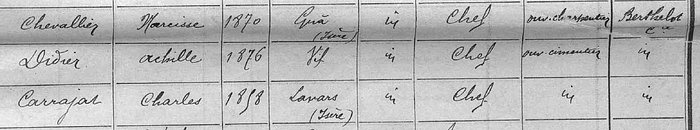 Chevallier Narcisse 1870 Guâ (Isère) in Chef ouv. charpentier Berthelot Cie
Didier Achille 1876 Vif in Chef ouv. cimentier in
Carrajat Charles 1858 Lavars (Isère) in Chef in in